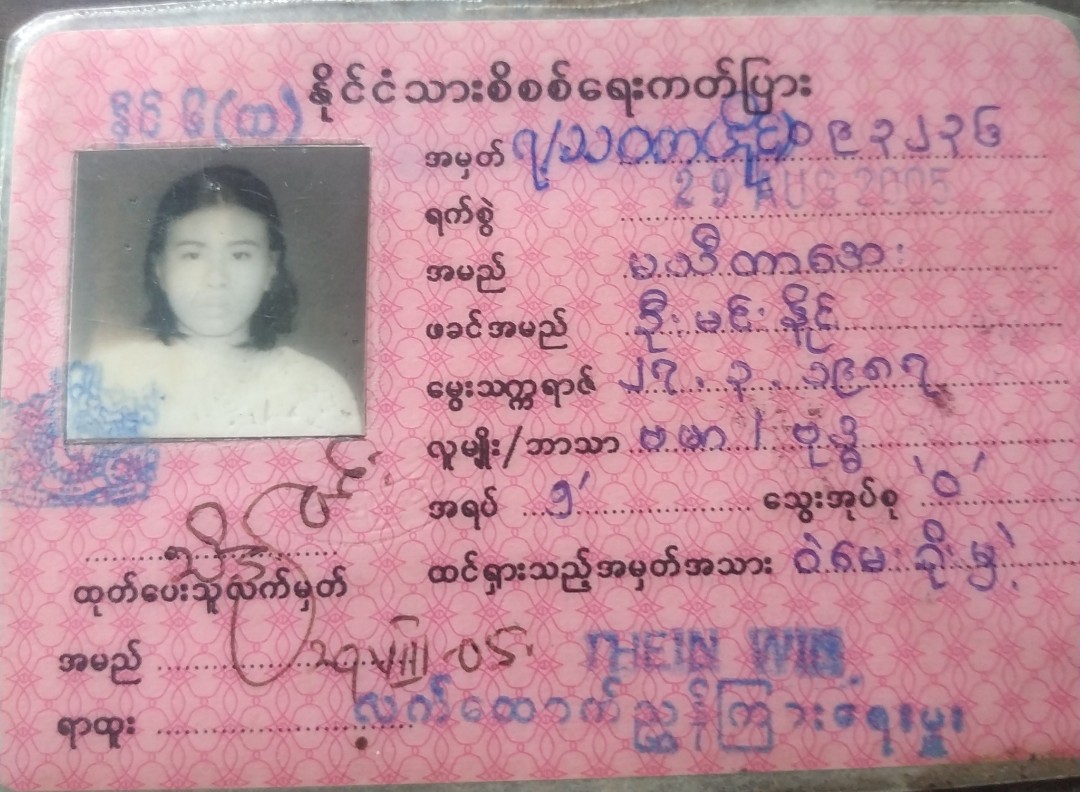 နိုင်ငံသားစိစစ်ရေးကတ်ပြား
အမှတ် ၇/သဝတ(နိုင်)၀၉၃၂၃၆
ရက်စွဲ 29 AUG 2005
အမည် မသီတာအေး
ဖခင်အမည် ဦးမင်းနိုင်
မွေးသက္ကရာဇ် ၂၇.၃.၁၉၈၇
လူမျိုး/ဘာသာ ဗမာ / ဗုဒ္ဓ
အရပ် ၅'
သွေးအုပ်စု 'ဝ'
ထင်ရှားသည့်အမှတ်အသား ဝဲမေးရိုးမှဲ့
ထုတ်ပေးသူလက်မှတ်
အမည် THEIN WIN
ရာထူး လက်ထောက်ညွှန်ကြားရေးမှူး